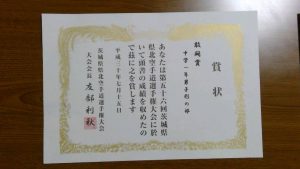 賞状
敢闘賞
中学一年男子形の部
あなたは第五十六回茨城県
県北空手道選手権大会に於
いて頭書の成績を収めたの
で茲に之を賞します
平成三十年七月十五日
茨城県県北空手道選手権大会
大会会長 友部利秋